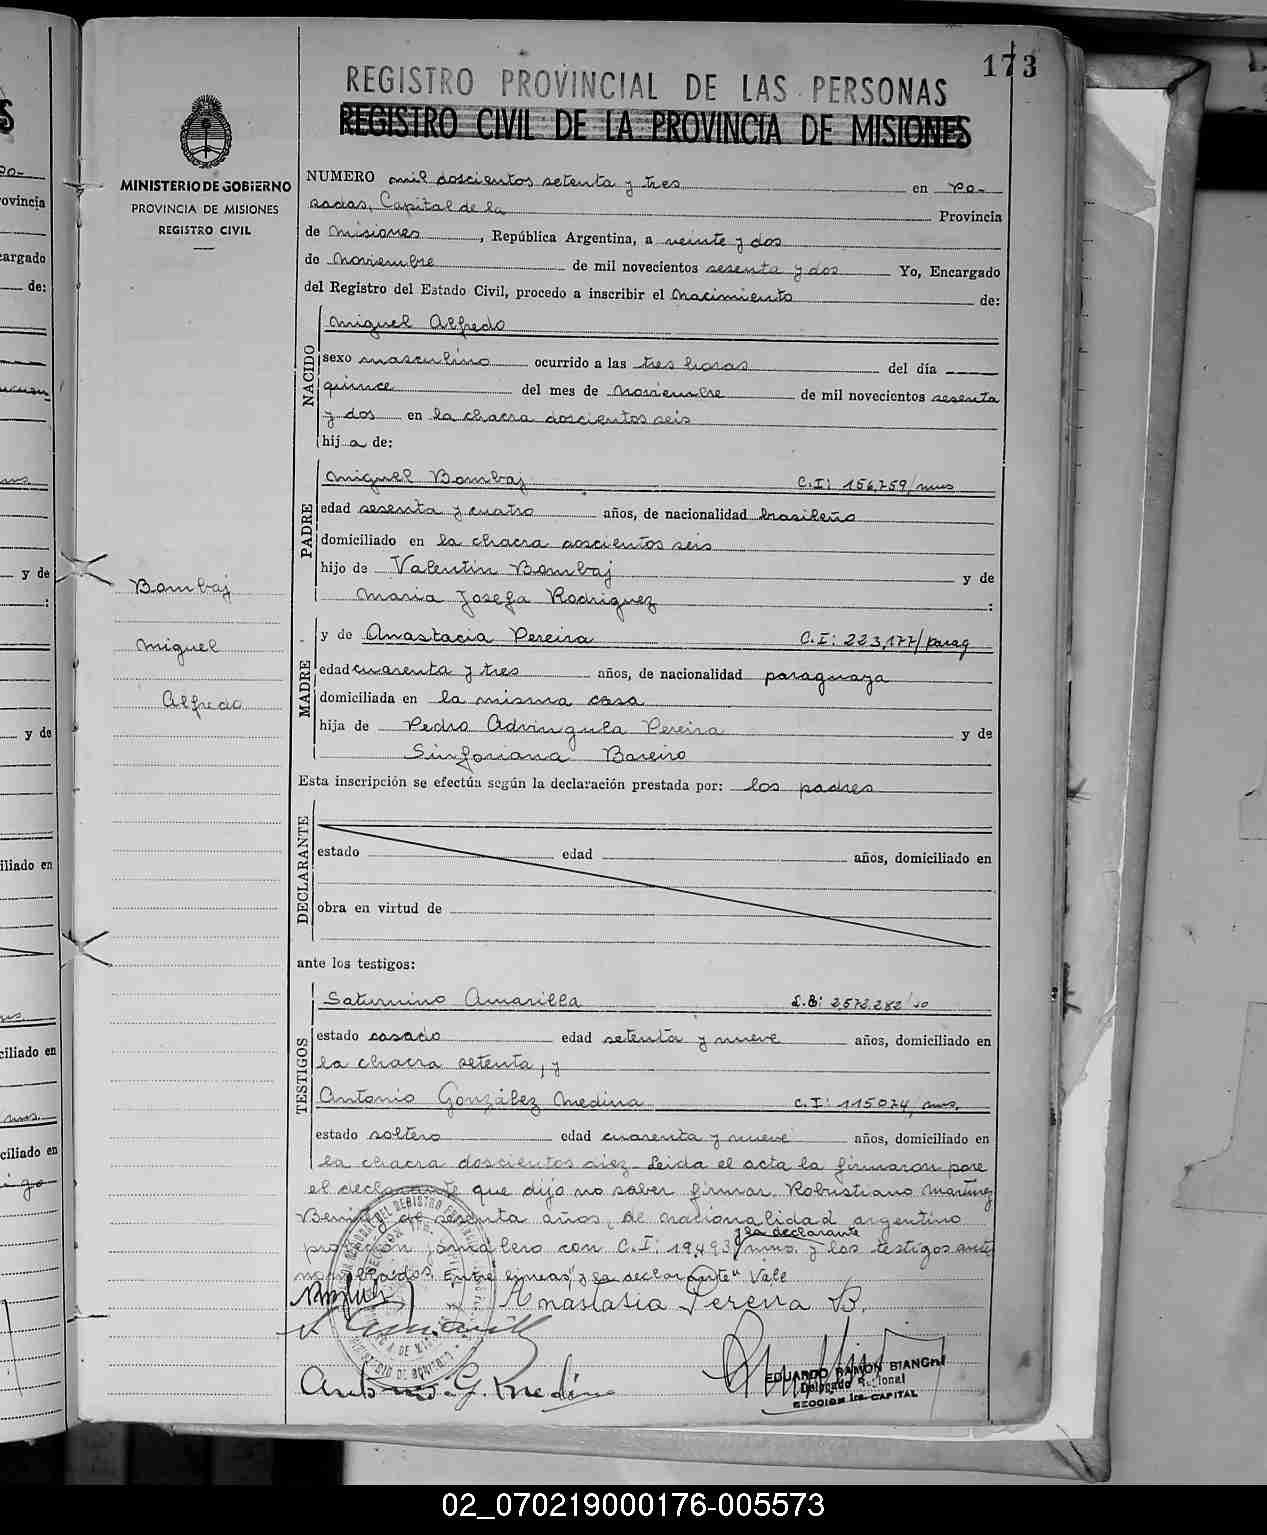 173
REGISTRO PROVINCIAL DE LAS PERSONAS
REGISTRO CIVIL DE LA PROVINCIA DE MISIONES
MINISTERIO DE GOBIERNO
PROVINCIA DE MISIONES
REGISTRO CIVIL
NUMERO mil doscientos setenta y tres en Po-
sadas, Capital de la Provincia
de Misiones, República Argentina, a veinte y dos
de Noviembre de mil novecientos sesenta y dos Yo, Encargado
del Registro del Estado Civil, procedo a inscribir el Nacimiento de:
NACIDO
Miguel Alfredo
sexo masculino ocurrido a las tres horas del día
quince del mes de Noviembre de mil novecientos sesenta
y dos en la chacra doscientos seis
hij a de:
PADRE
Miguel Bombaj C.I: 156,759/mns
edad sesenta y cuatro años, de nacionalidad brasileño
domiciliado en la chacra doscientos seis
hijo de Valentín Bombaj y de
Maria Josefa Rodriguez :
Bombaj
Miguel
Alfredo
MADRE
y de Anastacia Pereira C.I: 223,177/parag
edad cuarenta y tres años, de nacionalidad paraguaya
domiciliada en la misma casa
hija de Pedro Advíngula Pereira y de
Sinforiana Bareiro
Esta inscripción se efectúa según la declaración prestada por: los padres
DECLARANTE
estado edad años, domiciliado en
obra en virtud de
ante los testigos:
TESTIGOS
Saturnino Amarilla L.E: 2,572.282
estado casado edad setenta y nueve años, domiciliado en
la chacra setenta, y
Antonio González Medina C.I: 115074/mns.
estado soltero edad cuarenta y nueve años, domiciliado en
la chacra doscientos diez. Leida el acta la firmaron por
el declarante que dijo no saber firmar, Robustiano Martínez
de sesenta años, de nacionalidad argentino
jornalero con C.I: 19,493/mns. y los testigos ante
y la declarante
nombrados. Entre lineas "y la declarante" Vale
Anastasia Pereira B.
Antonio G. Medina
EDUARDO RAMON BIANCHI
Delegado Seccional
SECCION 1ra. CAPITAL
02_070219000176-005573